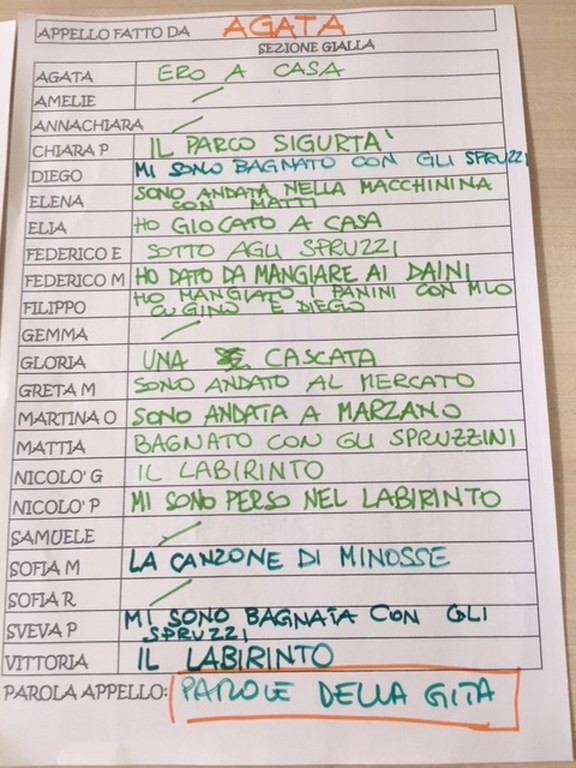 APPELLO FATTO DA AGATA
SEZIONE GIALLA
AGATA ERO A CASA
AMELIE
ANNACHIARA
CHIARA P IL PARCO SIGURTA'
DIEGO MI SONO BAGNATO CON GLI SPRUZZI
ELENA SONO ANDATA NELLA MACCHININA
CON MATTI
ELIA HO GIOCATO A CASA
FEDERICO E SOTTO AGLI SPRUZZI
FEDERICO M HO DATO DA MANGIARE AI DAINI
FILIPPO HO MANGIATO I PANINI CON MIO
CUGINO E DIEGO
GEMMA
GLORIA UNA CASCATA
GRETA M SONO ANDATO AL MERCATO
MARTINA O SONO ANDATA A MARZANO
MATTIA BAGNATO CON GLI SPRUZZINI
NICOLO' G IL LABIRINTO
NICOLO' P MI SONO PERSO NEL LABIRINTO
SAMUELE
SOFIA M LA CANZONE DI MINOSSE
SOFIA R
SVEVA P MI SONO BAGNATA CON GLI
SPRUZZI
VITTORIA IL LABIRINTO
PAROLA APPELLO: PAROLE DELLA GITA